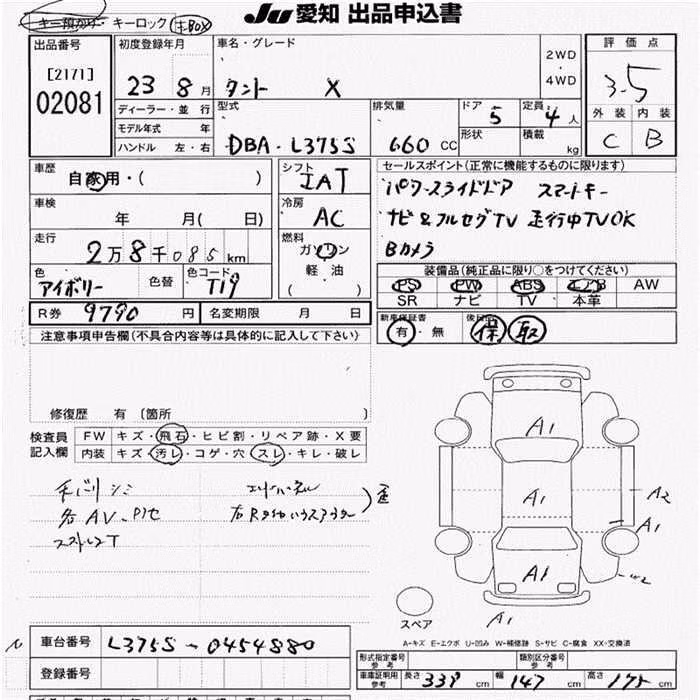 キー預かり キーロック キBOX
JU 愛知 出品申込書
出品番号
[2171]
02081
初度登録年月
23 8月
車名・グレード
タント X
2WD
・
4WD
評価点
3.5
外装 内装
C B
ディーラー・並行
モデル年式 年
ハンドル 左・右
型式
DBA-L375S
排気量
660 CC
ドア
5
定員
4人
形状
積載
kg
車歴
自家用・( )
シフト
IAT
セールスポイント(正常に機能するものに限ります)
パワースライドドア スマートキー
ナビ&フルセグTV 走行中TVOK
Bカメラ
車検
年 月( 日)
冷房
AC
走行
2万8千085km
燃料
ガソリン
軽油
( )
色
アイボリー
色替
色コード
T19
装備品(純正品に限り○をつけてください)
PS PW ABS エアB AW
SR ナビ TV 本革
R券 9790円
名変期限 月 日
新車保証書
有・無
後日
保 取
注意事項申告欄(不具合内容等は具体的に記入して下さい)
修復歴 有 [箇所 ]
検査員
記入欄
FW キズ・飛石・ヒビ割・リペア跡・X要
内装 キズ・汚レ・コゲ・穴・スレ・キレ・破レ
A1
A1
A2
A1
A1
W2
A1
スペア
A-キズ E-エクボ U-凹み W-補修跡 S-サビ C-腐食 XX-交換済
車台番号 L375S-0454880
登録番号
形式指定番号
参考
類別区分番号
参考
車庫証明用
参考
長さ 339 cm 幅 147 cm 高さ 175 cm